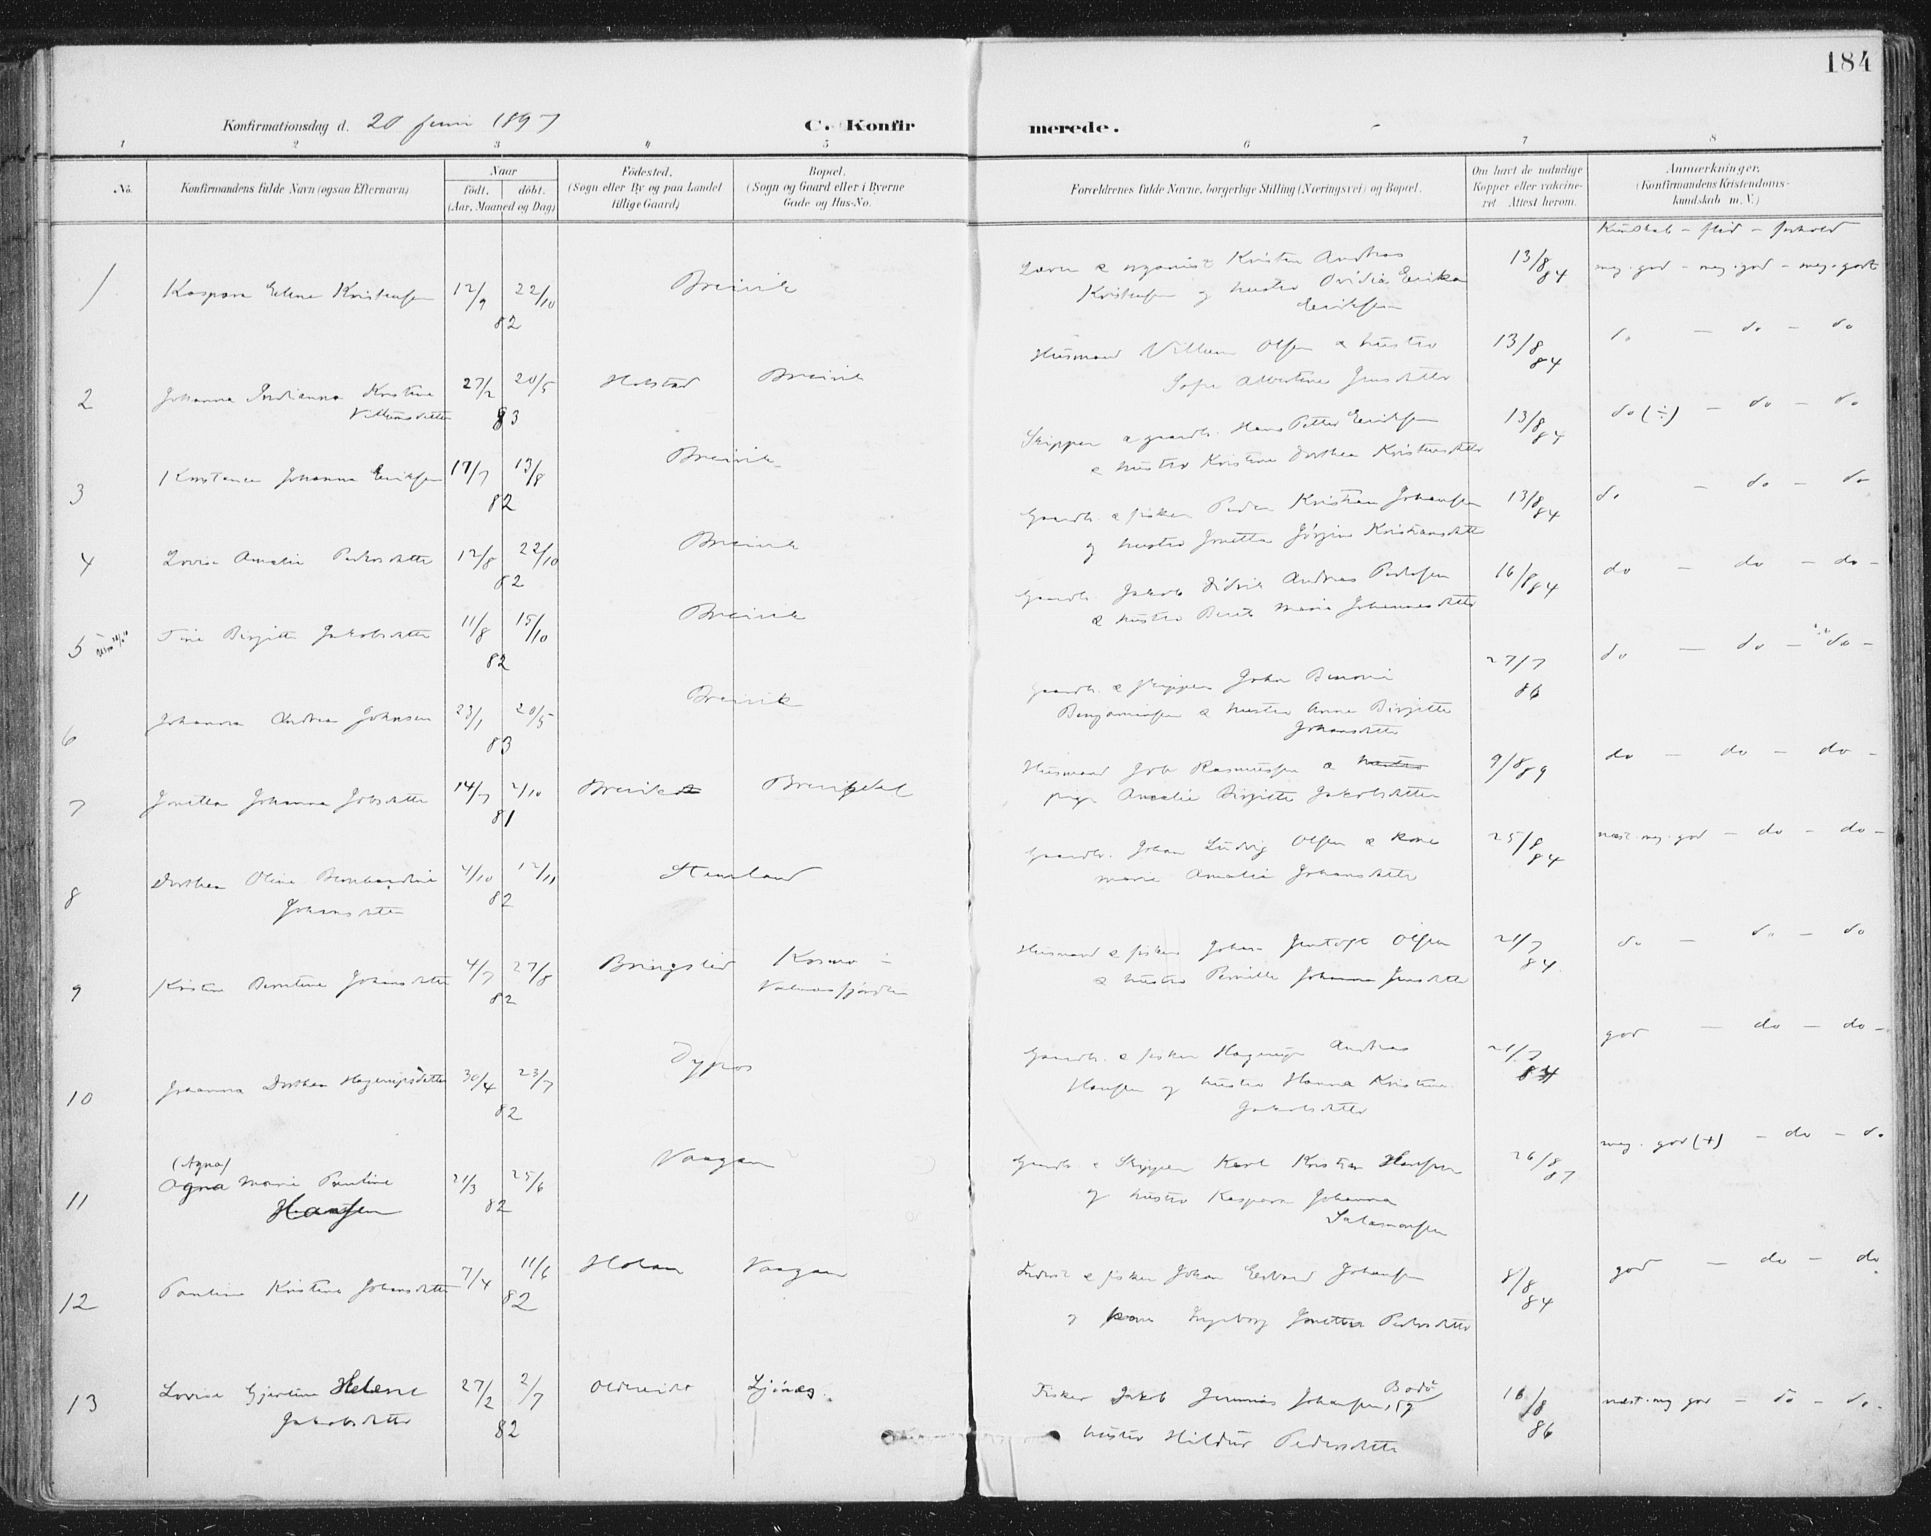 184
Konfirmationsdag d. 20 juni 1897
C. Konfir merede.
1 2 3 4 5 6 7 8
No.
Konfirmandens fulde Navn (ogsaa Efternavn)
Naar
födt. döbt.
(Aar, Maaned og Dag)
Födested.
(Sogn eller By og paa Landet
tillige Gaard)
Bopæl.
(Sogn og Gaard eller i Byerne
Gade og Hus-No.
Forældrenes fulde Navne, borgerlige Stilling (Næringsvei) og Bopæl.
Om havt de naturlige
Kopper eller vakcine-
ret Attest herom.
Anmærkninger.
(Konfirmandens Kristendoms-
kundskab m. V.)
Kundskab - flid - forhold
1 Kaspara Elene Kristensen 12/9 22/10 82 Breivik
Lærer & organist Kristen Andreas
Kristensen og hustro Ovidia Erika
Eriksen
13/8 84 meg. god - meg. god - meg. godt
2 Johanna Kristine
Villumsdatter 27/2 20/5 83 Holstad Breivik
Husmand Villum Olsen & hustro
Sofie Albertine Jensdatter
13/8 84 do - do - do
3 Konstance Johanna Eriksen 17/7 13/8 82 Breivik
Skipper & gaardb. Hans Petter Eriksen
& hustro Kristine Dorthea Kristensdatter
13/8 84 do (÷) - do - do
4 Lovise Amalie Pedersdatter 12/8 22/10 82 Breivik
Gaardb. & fisker Peder Kristian Johansen
og hustro Jonetta Jörgine Kristiansdatter
13/8 84 do - do - do
5 Tine Birgitte Jakobsdatter 11/8 15/10 82 Breivik
Gaardb. Jakob Didrik Andreas Pedersen
& hustro Berit Maria Johannesdatter
16/8 84 do - do - do -
6 Johanna Andrea Johnsen 23/1 20/5 83 Breivik
Gaardb. & skipper John Benoni
Benjaminsen & hustro Anne Birgitte
Johansdatter
27/7 86 do - do - do -
7 Jonetta Johanna Jobsdatter 14/7 2/10 81 Breivik
Husmand Job Rasmussen & hustro
pige Amalie Birgitte Jakobsdatter
9/8 89 do - do - do -
8 Dorthea Oline Bernhardine
Johansdatter 4/10 12/11 82 Stemland
Gaardb. Johan Ludvig Olsen & kone
Marie Amalie Johansdatter
25/8 84 næst. meg. god - do - do -
9 Kristine Berntine Johansdatter 4/7 27/8 82 Bringslid Kosmo i
Valnesfjorden
Husmand & fisker Johan Jentoft Olsen
& hustro Pernille Johanna Jensdatter
21/7 84. do - do - do
10 Johanna Dorthea Hagerupsdatter 30/4 23/7 82 Dypos
Gaardb. & fisker Hagerup Andreas
Hansen og hustro Hanna Kristine
Jakobsdatter
21/7 84 god - do - do -
11 (Agna)
Ogna Marie Pauline
Hansen 21/3 25/6 82 Vaagan
Gaardb. & Skipper Karl Kristian Hansen
og hustro Kaspara Johanna
Salamonsen
26/8 87 meg. god (+) - do - do
12 Pauline Kristine Johansdatter 7/4 11/6 82 Holan Vaagan
Inderst & fisker Johan Edvard Johansen
og kone Ingeborg Jonetta Pedersdatter
8/8 84 god - do - do
13 Lovise Gjertine Helene
Jakobsdatter 27/2 2/7 82 Oldereide Ljönes.
Fisker Jakob Johansen, Bodö og
hustro Hildur Pedersdatter
16/8 86 næst. meg god - do - do -